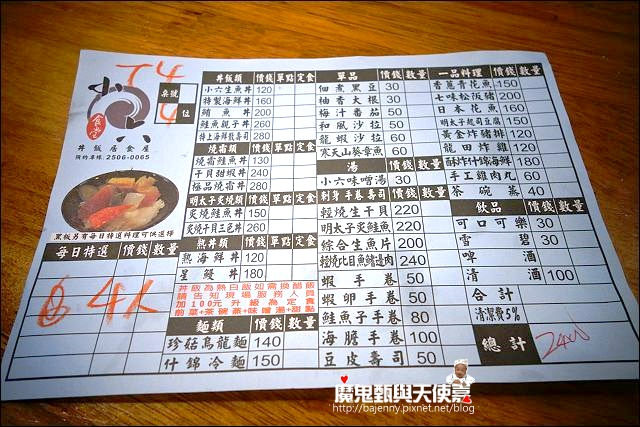 T4
小六
食堂
丼飯居食屋
預約專線:2506-0065
桌號
4位
黑板另有每日特選料理可供選擇
每日特選 價錢 數量
4人
丼飯類 價錢 單點 定食
小六生魚丼 120
特製海鮮丼 160
鮪魚丼 200
鮭魚親子丼 260
特上海鮮散壽司 280
燒霜類 價錢 單點 定食
燒霜鮭魚丼 130
干貝甜蝦丼 240
極品燒霜丼 280
明太子炙燒類 價錢 單點 定食
炙燒鮭魚丼 150
炙燒干貝三色丼 260
熱丼類 價錢 單點 定食
熱海鮮丼 120
星鰻丼 180
丼飯為熱白飯如需換醋飯
請告知現場服務人員
加100元升級為定食
前菜+茶碗蒸+味噌湯+甜點
麵類 價錢 數量
珍菇烏龍麵 140
什錦冷麵 150
單品 價錢 數量
佃煮黑豆 30
柚香大根 30
梅汁番茄 50
和風沙拉 50
龍蝦沙拉 60
寒天山葵章魚 60
湯
小六味噌湯 30
刺身手卷壽司
輕燒生干貝 220
明太子鮭魚 220
綜合生魚片 200
輕燒比目魚鰭邊肉 240
蝦手卷 50
蝦卵手卷 50
鮭魚子手卷 80
海膽手卷 100
豆皮壽司 50
一品料理 價錢 數量
香蔥青花魚 150
七味松阪豬 200
日本花魚 150
明太子起司豆腐 150
黃金炸豬排 120
龍田炸雞 120
酥炸什錦海鮮 180
手工雞肉丸 60
茶碗蒸 40
飲品
可口可樂 30
雪碧 30
啤酒
清酒 100
合計
清潔費5%
總計
魔鬼甄與天使嘉
http://bajenny.pixnet.net/blog